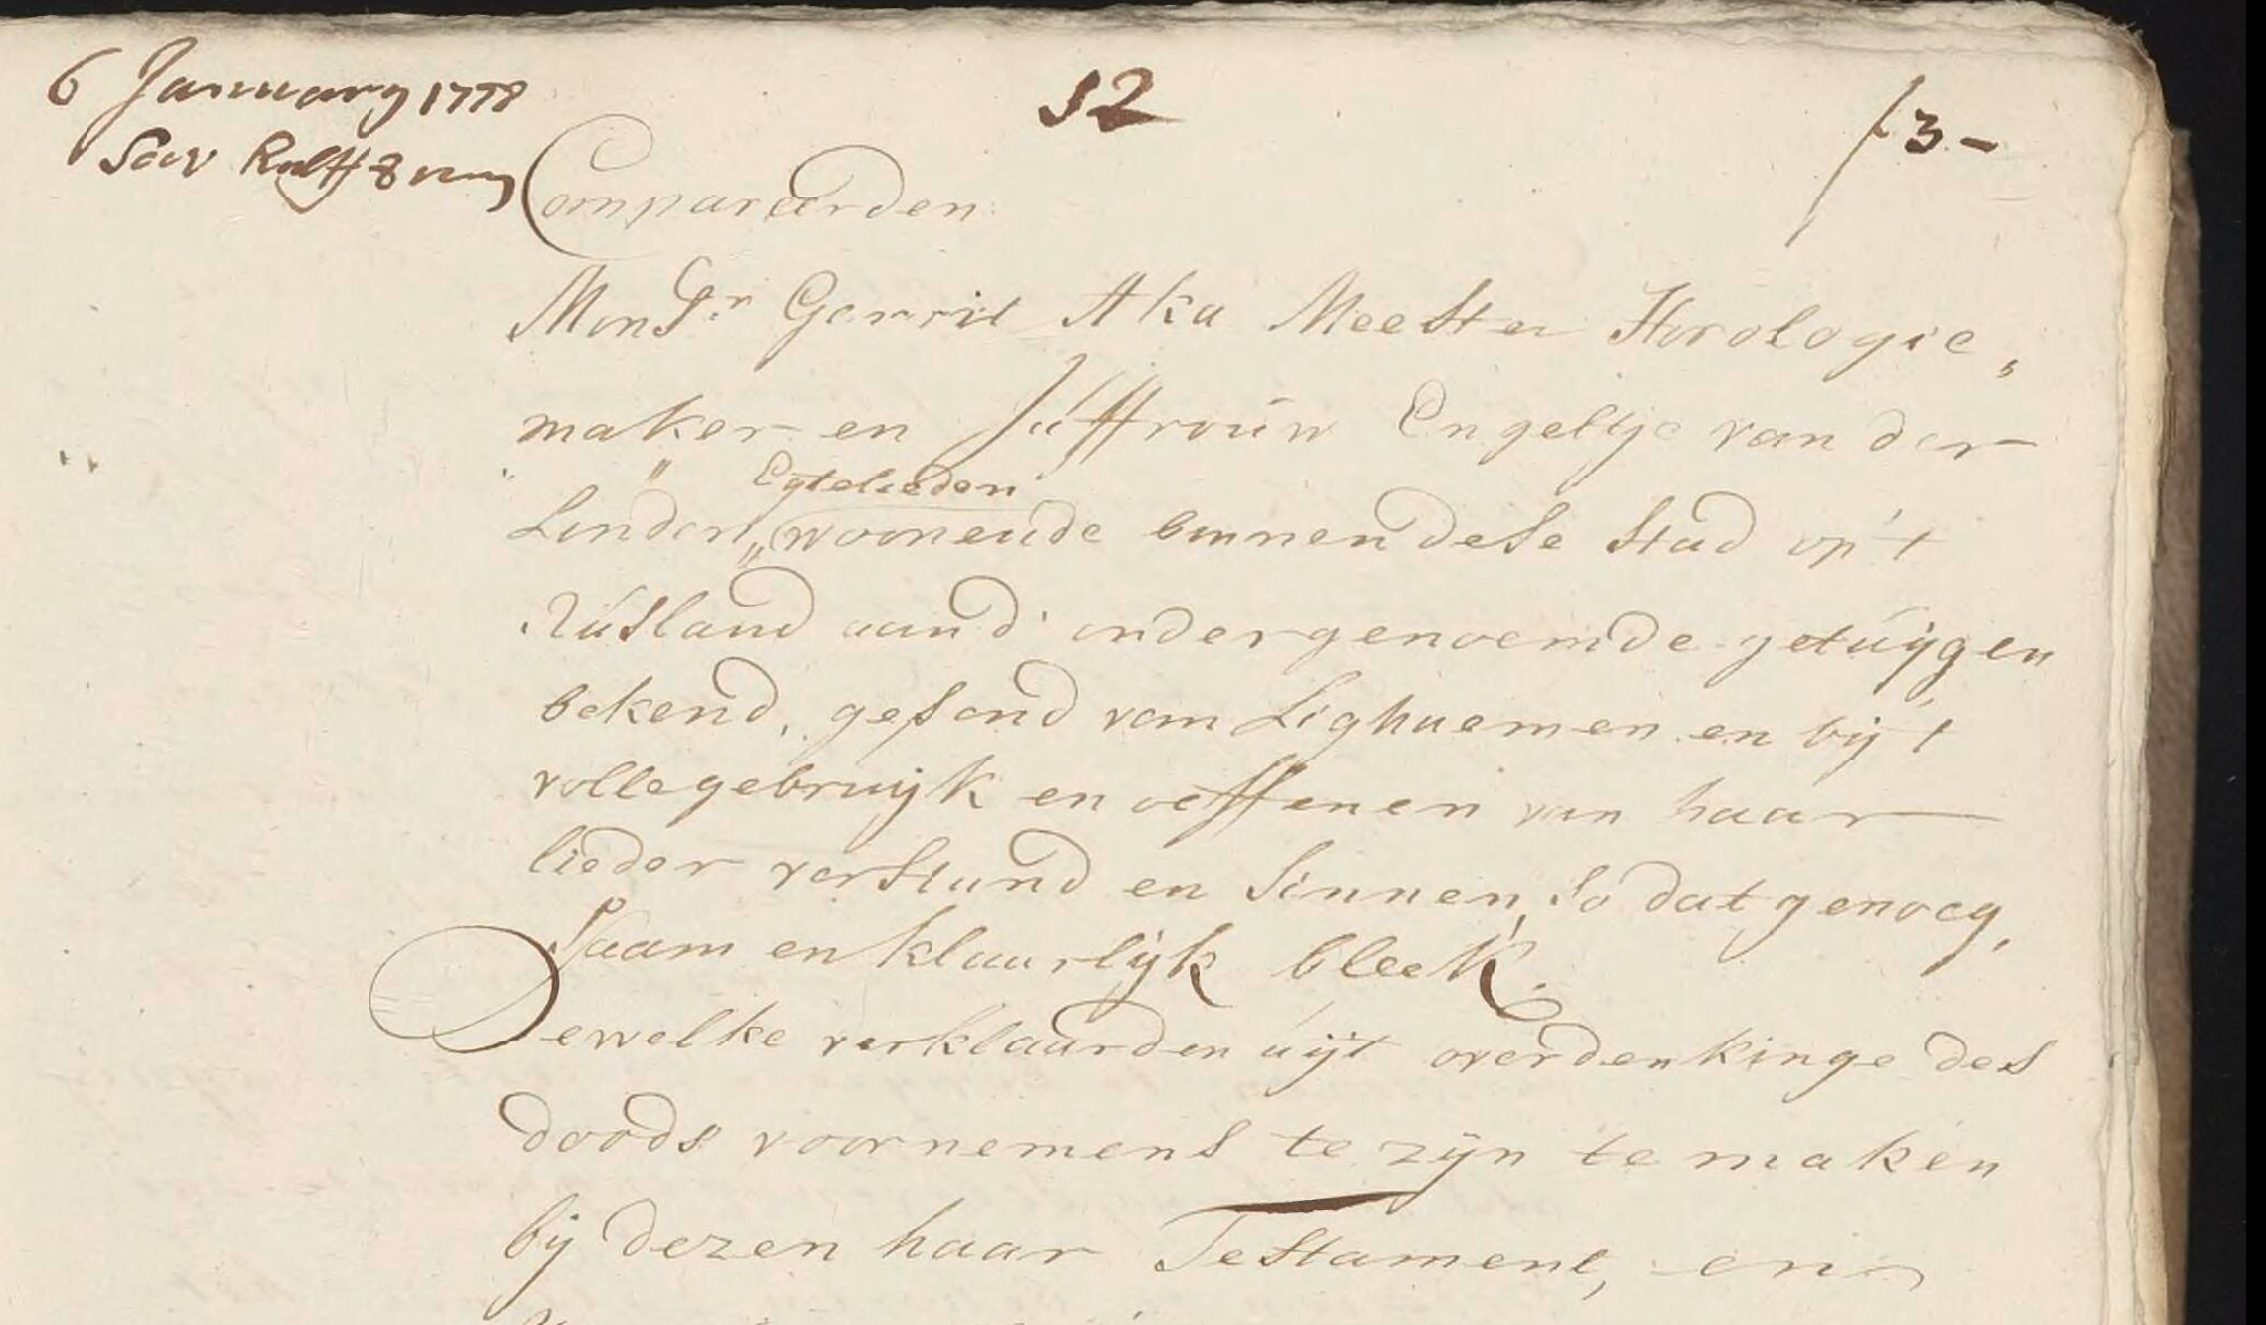 6 January 1778
52
f 3 -
Compareerden
Monsr Gerrit Aka Meester Horologie,
maker en Juffrouw Engeltje van der
Egtelieden
Linden woonende binnen dese Stad op't
Rúsland aan d' ondergenoemde getúijgen
bekend, gesond van Lighaemen en bij 't
volle gebruijk en oeffenen van haar
lieder verstand en Sinnen, so dat genoeg,
Saam en klaarlijk bleek.
Dewelke verklaarden úijt overdenkinge des
doods voornemens te zijn te maken
bij dezen haar Testament, en